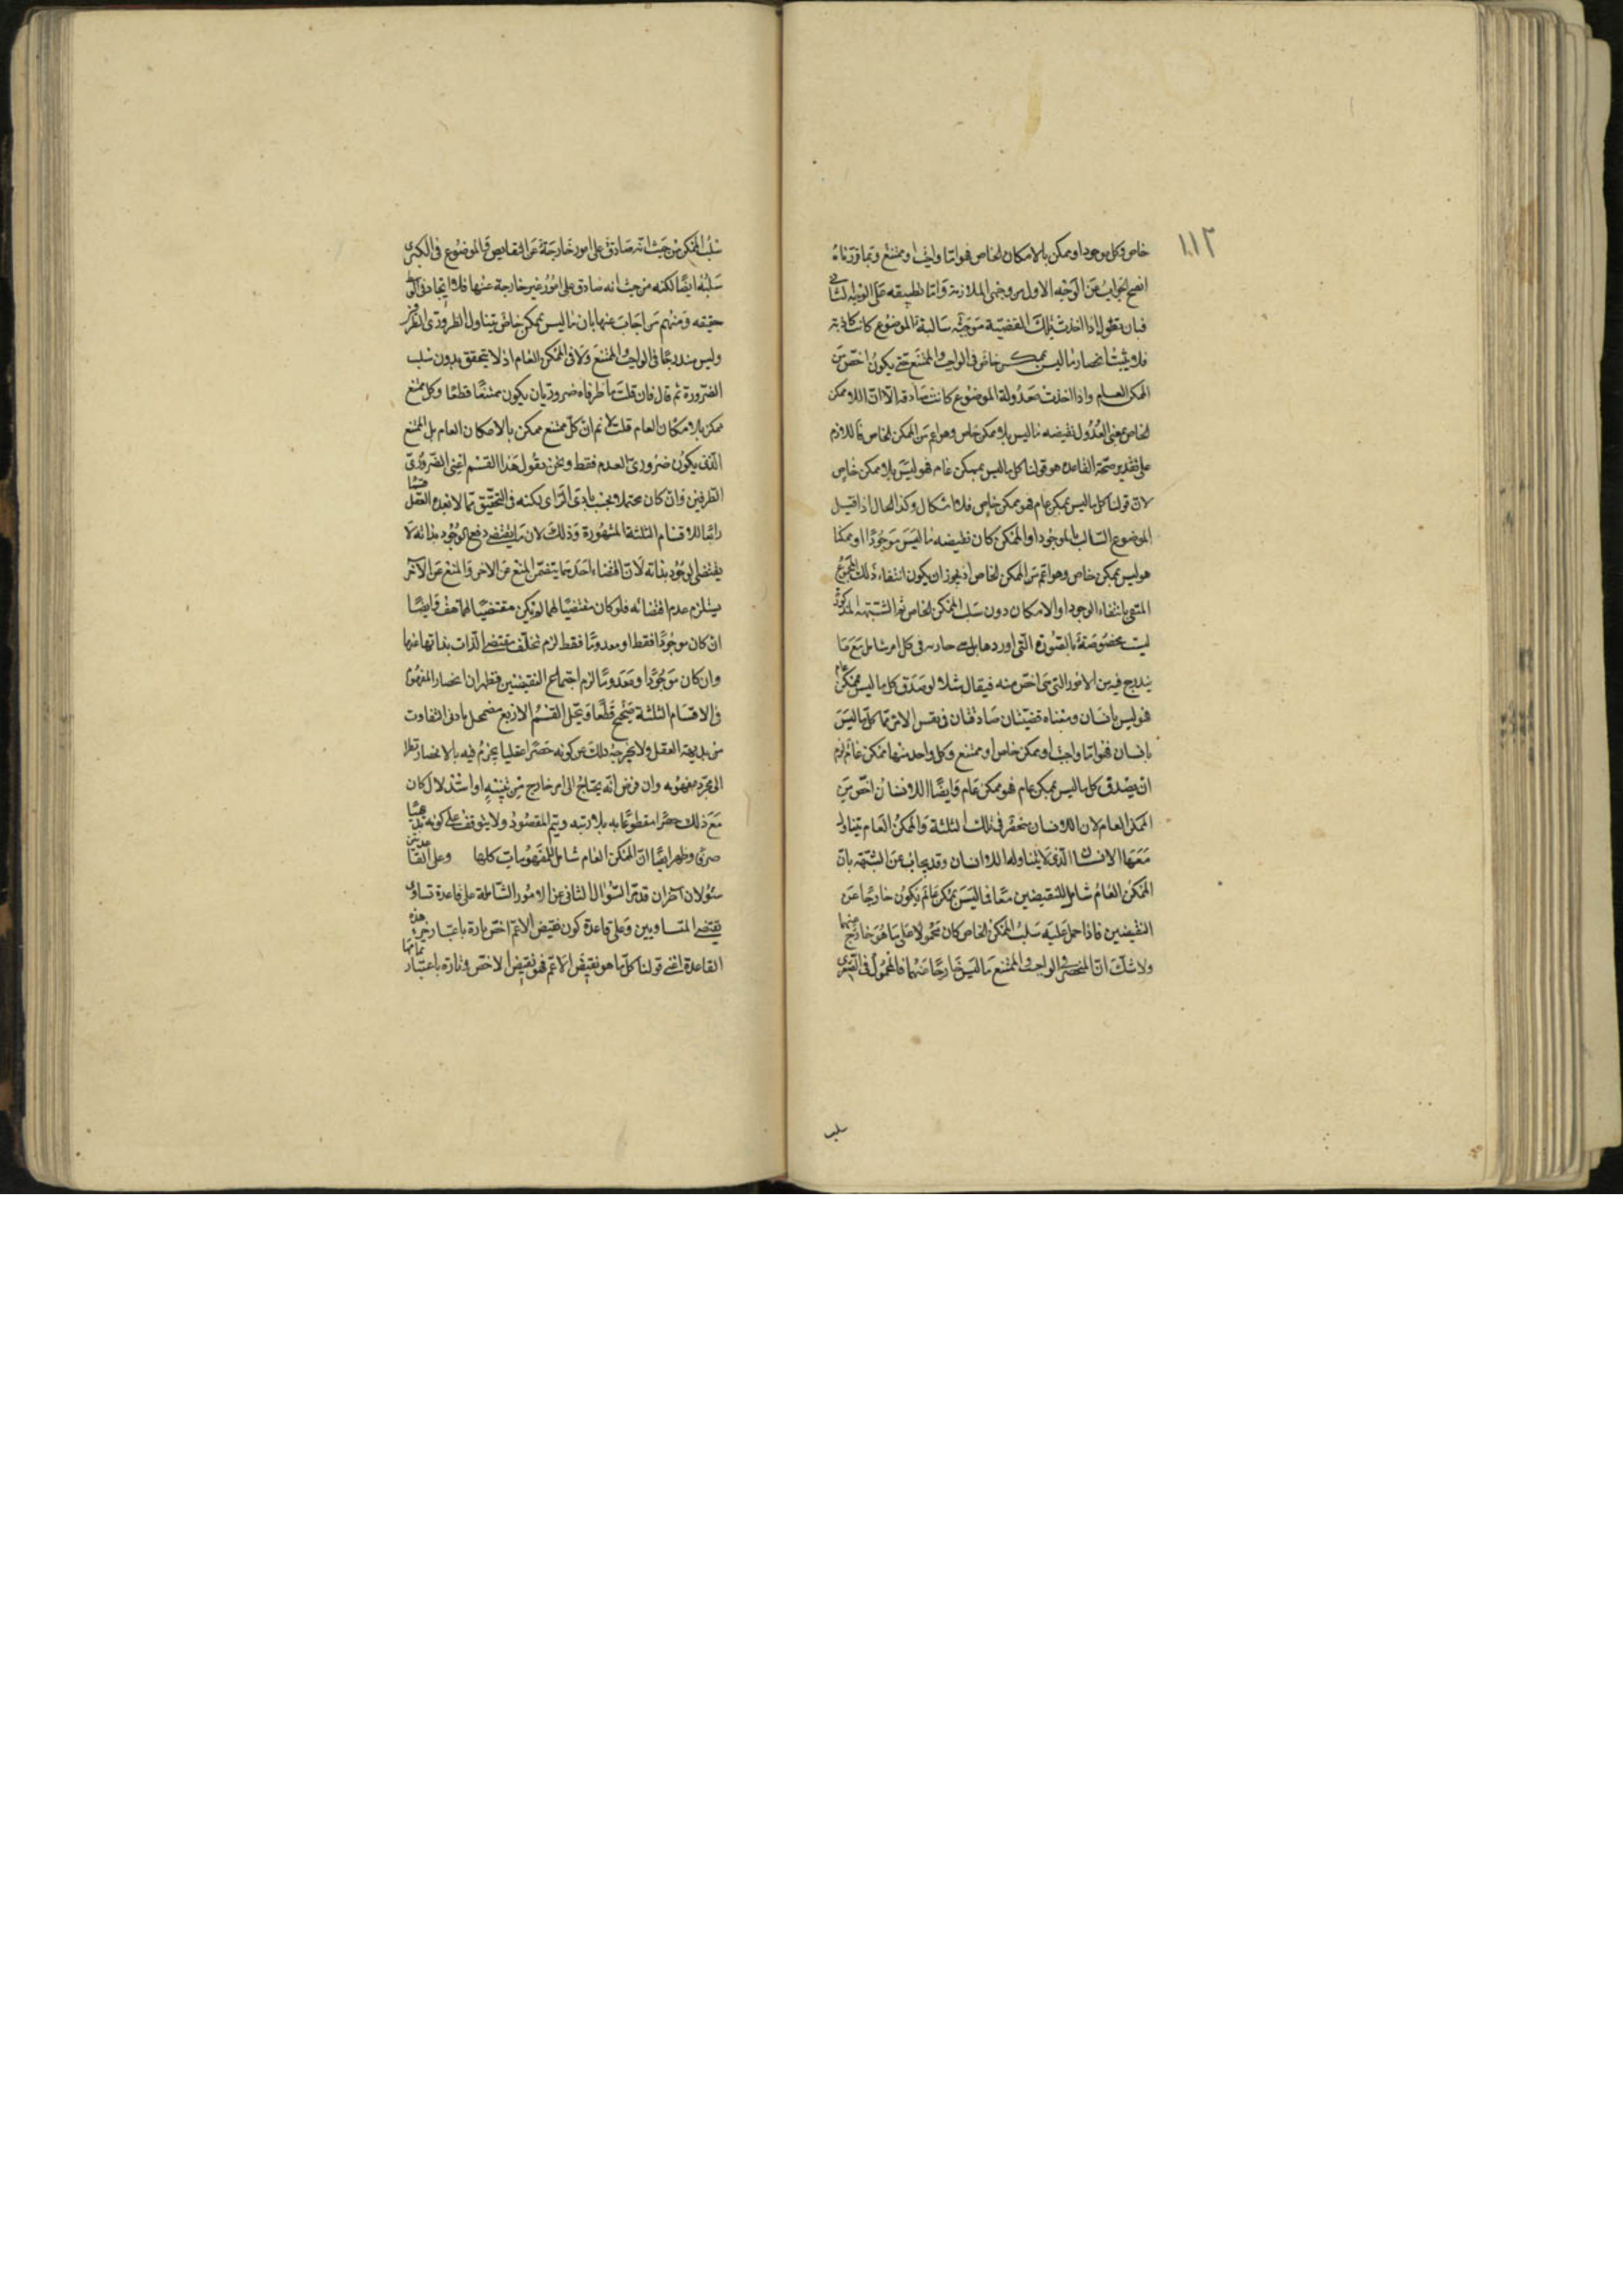 ١١٢
خاص وكل موجود او ممكن بالامكان الخاص فهو اما واجب او ممتنع وبما قررناه
اتضح الجواب عن الوجه الاول من وجهى الملازمة واما تطبيقه على الوجه الثانى
فبان يقول اذا اخذت تلك القضية موجبة سالبة الموضوع كانت كاذبة
فلا يثبت انحصار ما ليس بممكن خاص فى الواجب والممتنع حتى يكون اخص من
الممكن العام واذا اخذت معدولة الموضوع كانت صادقة الا ان اللا ممكن
الخاص بمعنى العدول نقيضه ما ليس بلا ممكن خاص وهو اعم من الممكن الخاص فاللازم
على تقدير صحة القاعدة هو قولنا كل ما ليس بممكن عام فهو ليس بلا ممكن خاص
لا ان قولنا كل ما ليس بممكن عام فهو ممكن خاص فلا اشكال وكذا الحال اذا قيل
الموضوع السالب بالموجود او الممكن كان نقيضه ما ليس موجودا او ممكنا
هو ليس بممكن خاص وهو اعم من الممكن الخاص اذ يجوز ان يكون انتفاء ذلك المجموع
بانتفاء الوجود او الامكان دون سلب الممكن الخاص ثم الشبهة المذكورة
ليست مخصوصة بالصورة التى اوردها بل هى جارية فى كل امر شامل مع ما
يندرج فيه من الامور التى هى اخص منه فيقال مثلا لو صدق كل ما ليس بممكن عام
فهو ليس بانسان ومعناه قضيتان صادقتان فى نفس الامر هما كل ما ليس
بانسان فهو اما واجب او ممكن خاص او ممتنع وكل واحد منها ممكن عام لزم
ان يصدق كل ما ليس بممكن عام فهو ممكن عام وايضا اللاانسان اخص من
الممكن العام لان اللاانسان منحصر فى تلك الثلثة والممكن العام يتناول
معها الانسان الذى لا يتناوله اللاانسان وقد يجاب عن الشبهة بان
الممكن العام شامل للنقيضين معا فما ليس بممكن عام يكون خارجا عن
النقيضين فاذا حمل عليه سلب الممكن الخاص كان محمولا على ما هو خارج عنهما
ولا شك ان المنحصر فى الواجب والممتنع ما ليس خارجا عنهما فالمحمول فى الصغرى
سلب
سلب الممكن من حيث انه صادق على امور خارجة عن النقايض والموضوع فى الكبرى
سلبه ايضا لكنه من حيث انه صادق على امور غير خارجة عنها فلا اتحاد فى الوسط
حقيقه ومنهم من اجاب عنها بان ما ليس بممكن خاص يتناول الضرورى الطرفين
وليس مندرجا فى الواجب والممتنع ولا فى الممكن العام اذ لا يتحقق بدون سلب
الضرورة ثم قال فان قلت ما طرفاه ضروريان يكون ممتنعا قطعا وكل ممتنع
ممكن بالامكان العام قلت لا نم ان كل ممتنع ممكن بالامكان العام بل الممتنع
الذى يكون ضرورى العدم فقط ونحن نقول هذا القسم اعنى الضرورى
الطرفين وان كان محتملا بحسب بادى الراى لكنه فى التحقيق مما لا يعده العقل قسما
رابعا للاقسام الثلثة المشهورة وذلك لان ما يقتضى رفع الوجود بذاته لا
يقتضى الوجود بذاته لان اقتضاء احدهما يتضمن المنع عن الاخر والمنع عن الآخر
يستلزم عدم اقتضائه فلو كان مقتضيا لهما لم يكن مقتضيا لهما هف وايضا
ان كان موجودا فقط او معدوما فقط لزم تخلف مقتضى الذات بذاتها عنها
وان كان موجودا ومعدوما لزم اجتماع النقيضين فظهر ان انحصار المفهوم
فى الاقسام الثلثة صحيح قطعا وتخيل القسم الاربع مضمحل بادنى التفات
من بديهة العقل ولا يخرج بذلك عن كونه حصرا عقليا يجزم فيه بالانحصار نظرا
الى مجرد مفهومه وان فرض انه يحتاج الى امر خارج من تنبيه او استدلال كان
مع ذلك حصرا مقطوعا به بلا ريبه ويتم المقصود ولا يتوقف على كونه بديهيا
صرفا وظهر ايضا ان الممكن العام شامل للمفهومات كلها وعلى القاعدتين
سؤلان آخران قدم السؤال الثانى عن الامور الشاملة على قاعدة تساوى
نقيضى المتساويين وعلى قاعدة كون نقيض الاعم اخص تارة باعتبار هذه
القاعدة اعنى قولنا كل ما هو نقيض الاعم فهو نقيض الاخص وتارة باعتبار